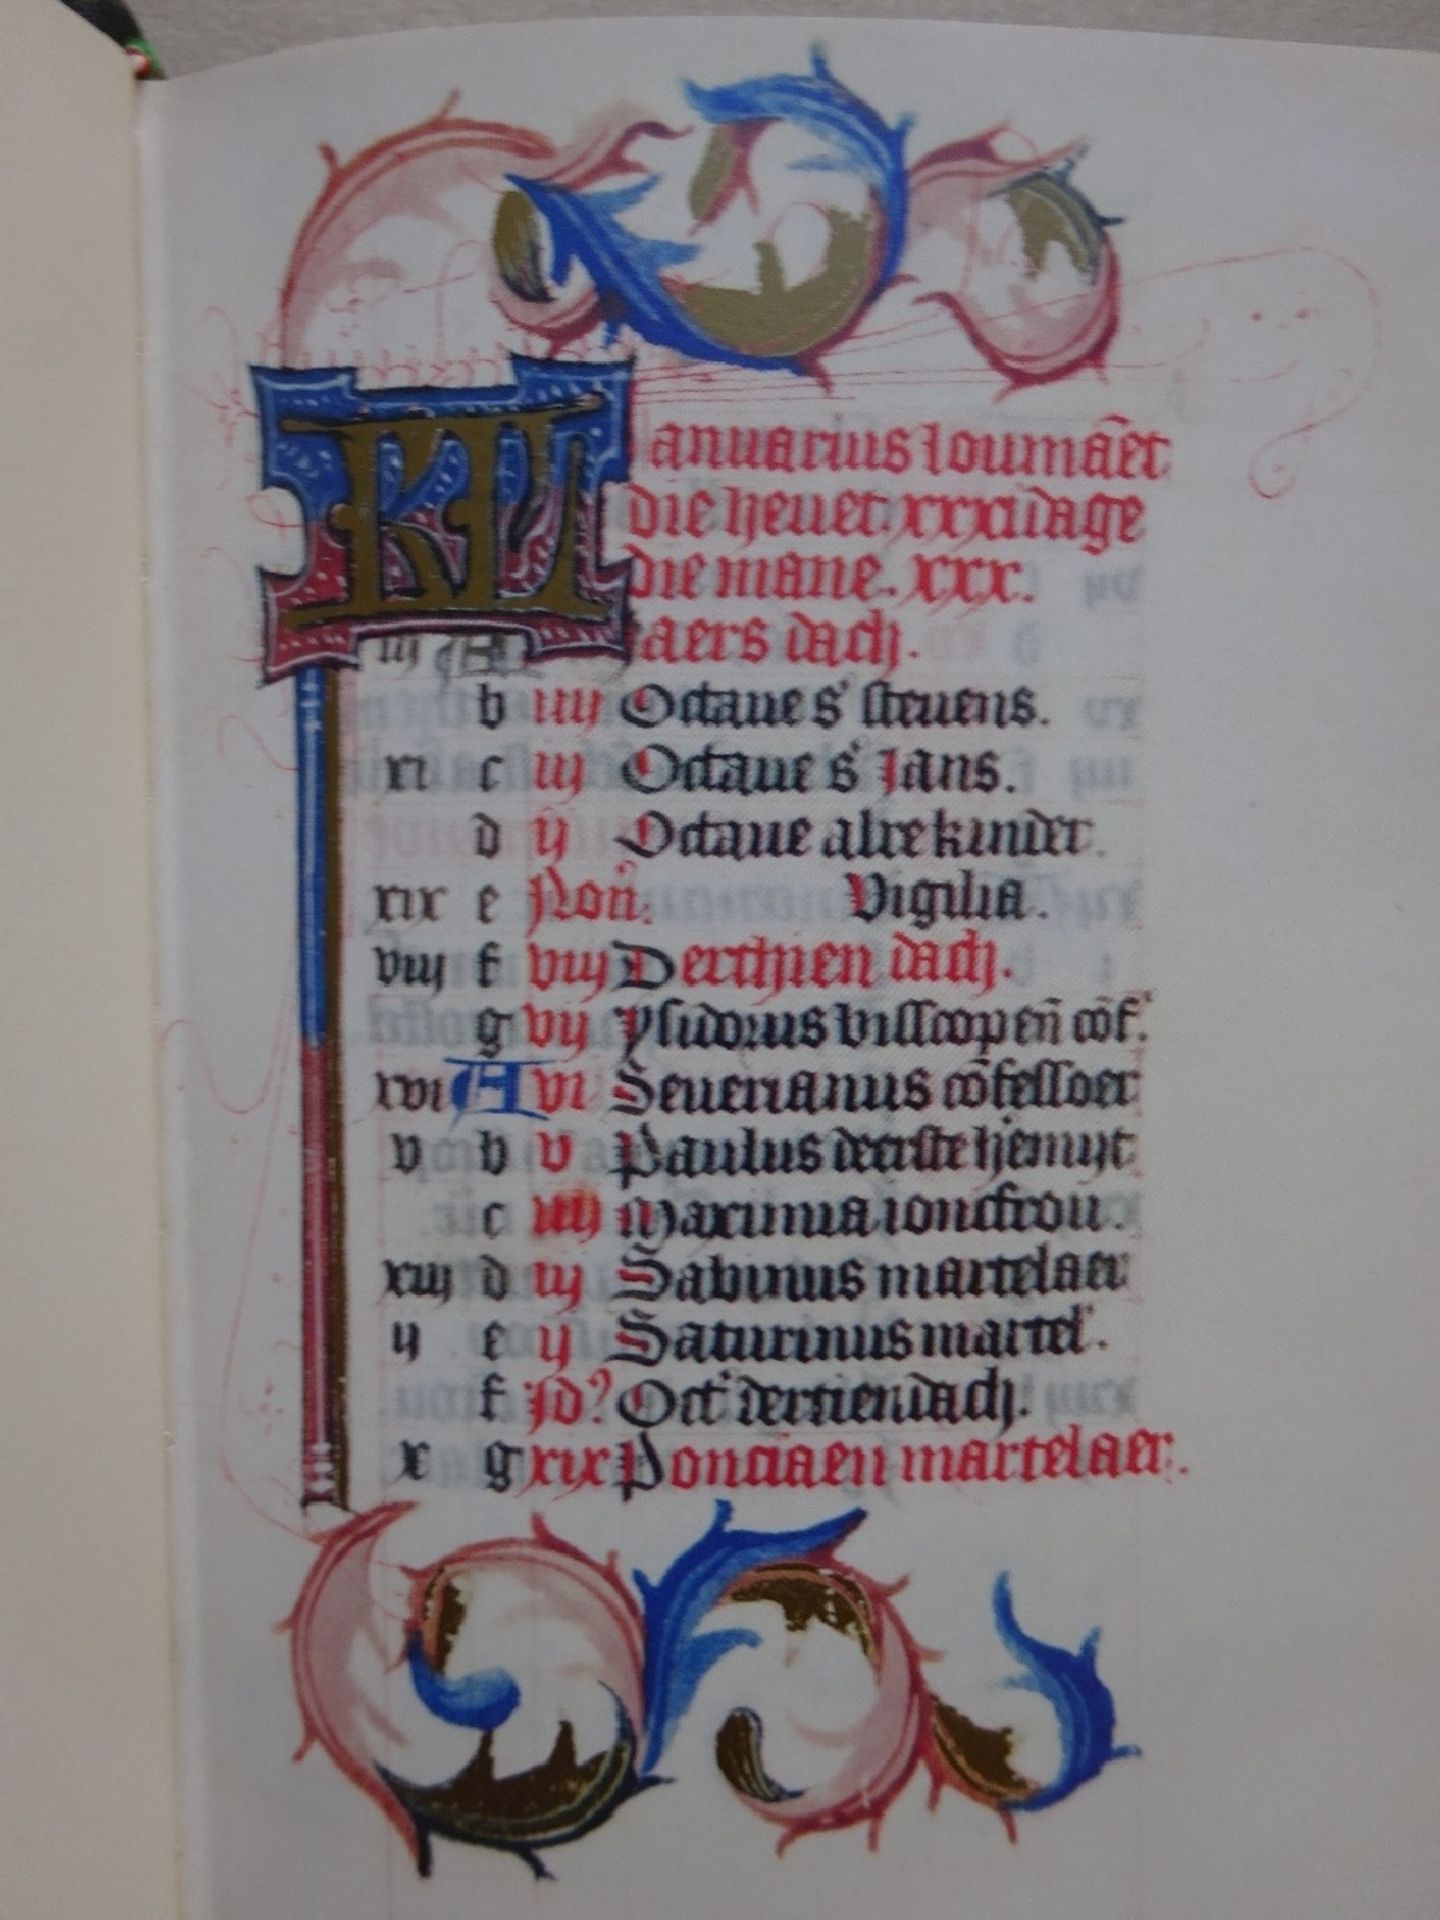 KL Januarius loumāet
die heuet. xxxi dage
die mane. xxx.
iij A Jaers dach.
b iiij Octaue s' steuens.
xi c iij Octaue s' Jans.
d ij Octaue alrekinder.
xix e Non. Vigilia.
viij f viij Derthien dach.
g vij ysidorus visscop eñ cōf.'
xvi A vi Seuerianus cōfessoer
v b v Paulus deerste hemijt
c iiij Maximia ioncfrou.
xiij d iij Sabinus martelaer
ij e ij Saturinus martel'.
f Id' Oct' dertiendach.
x g xix Ponciaen martelaer.